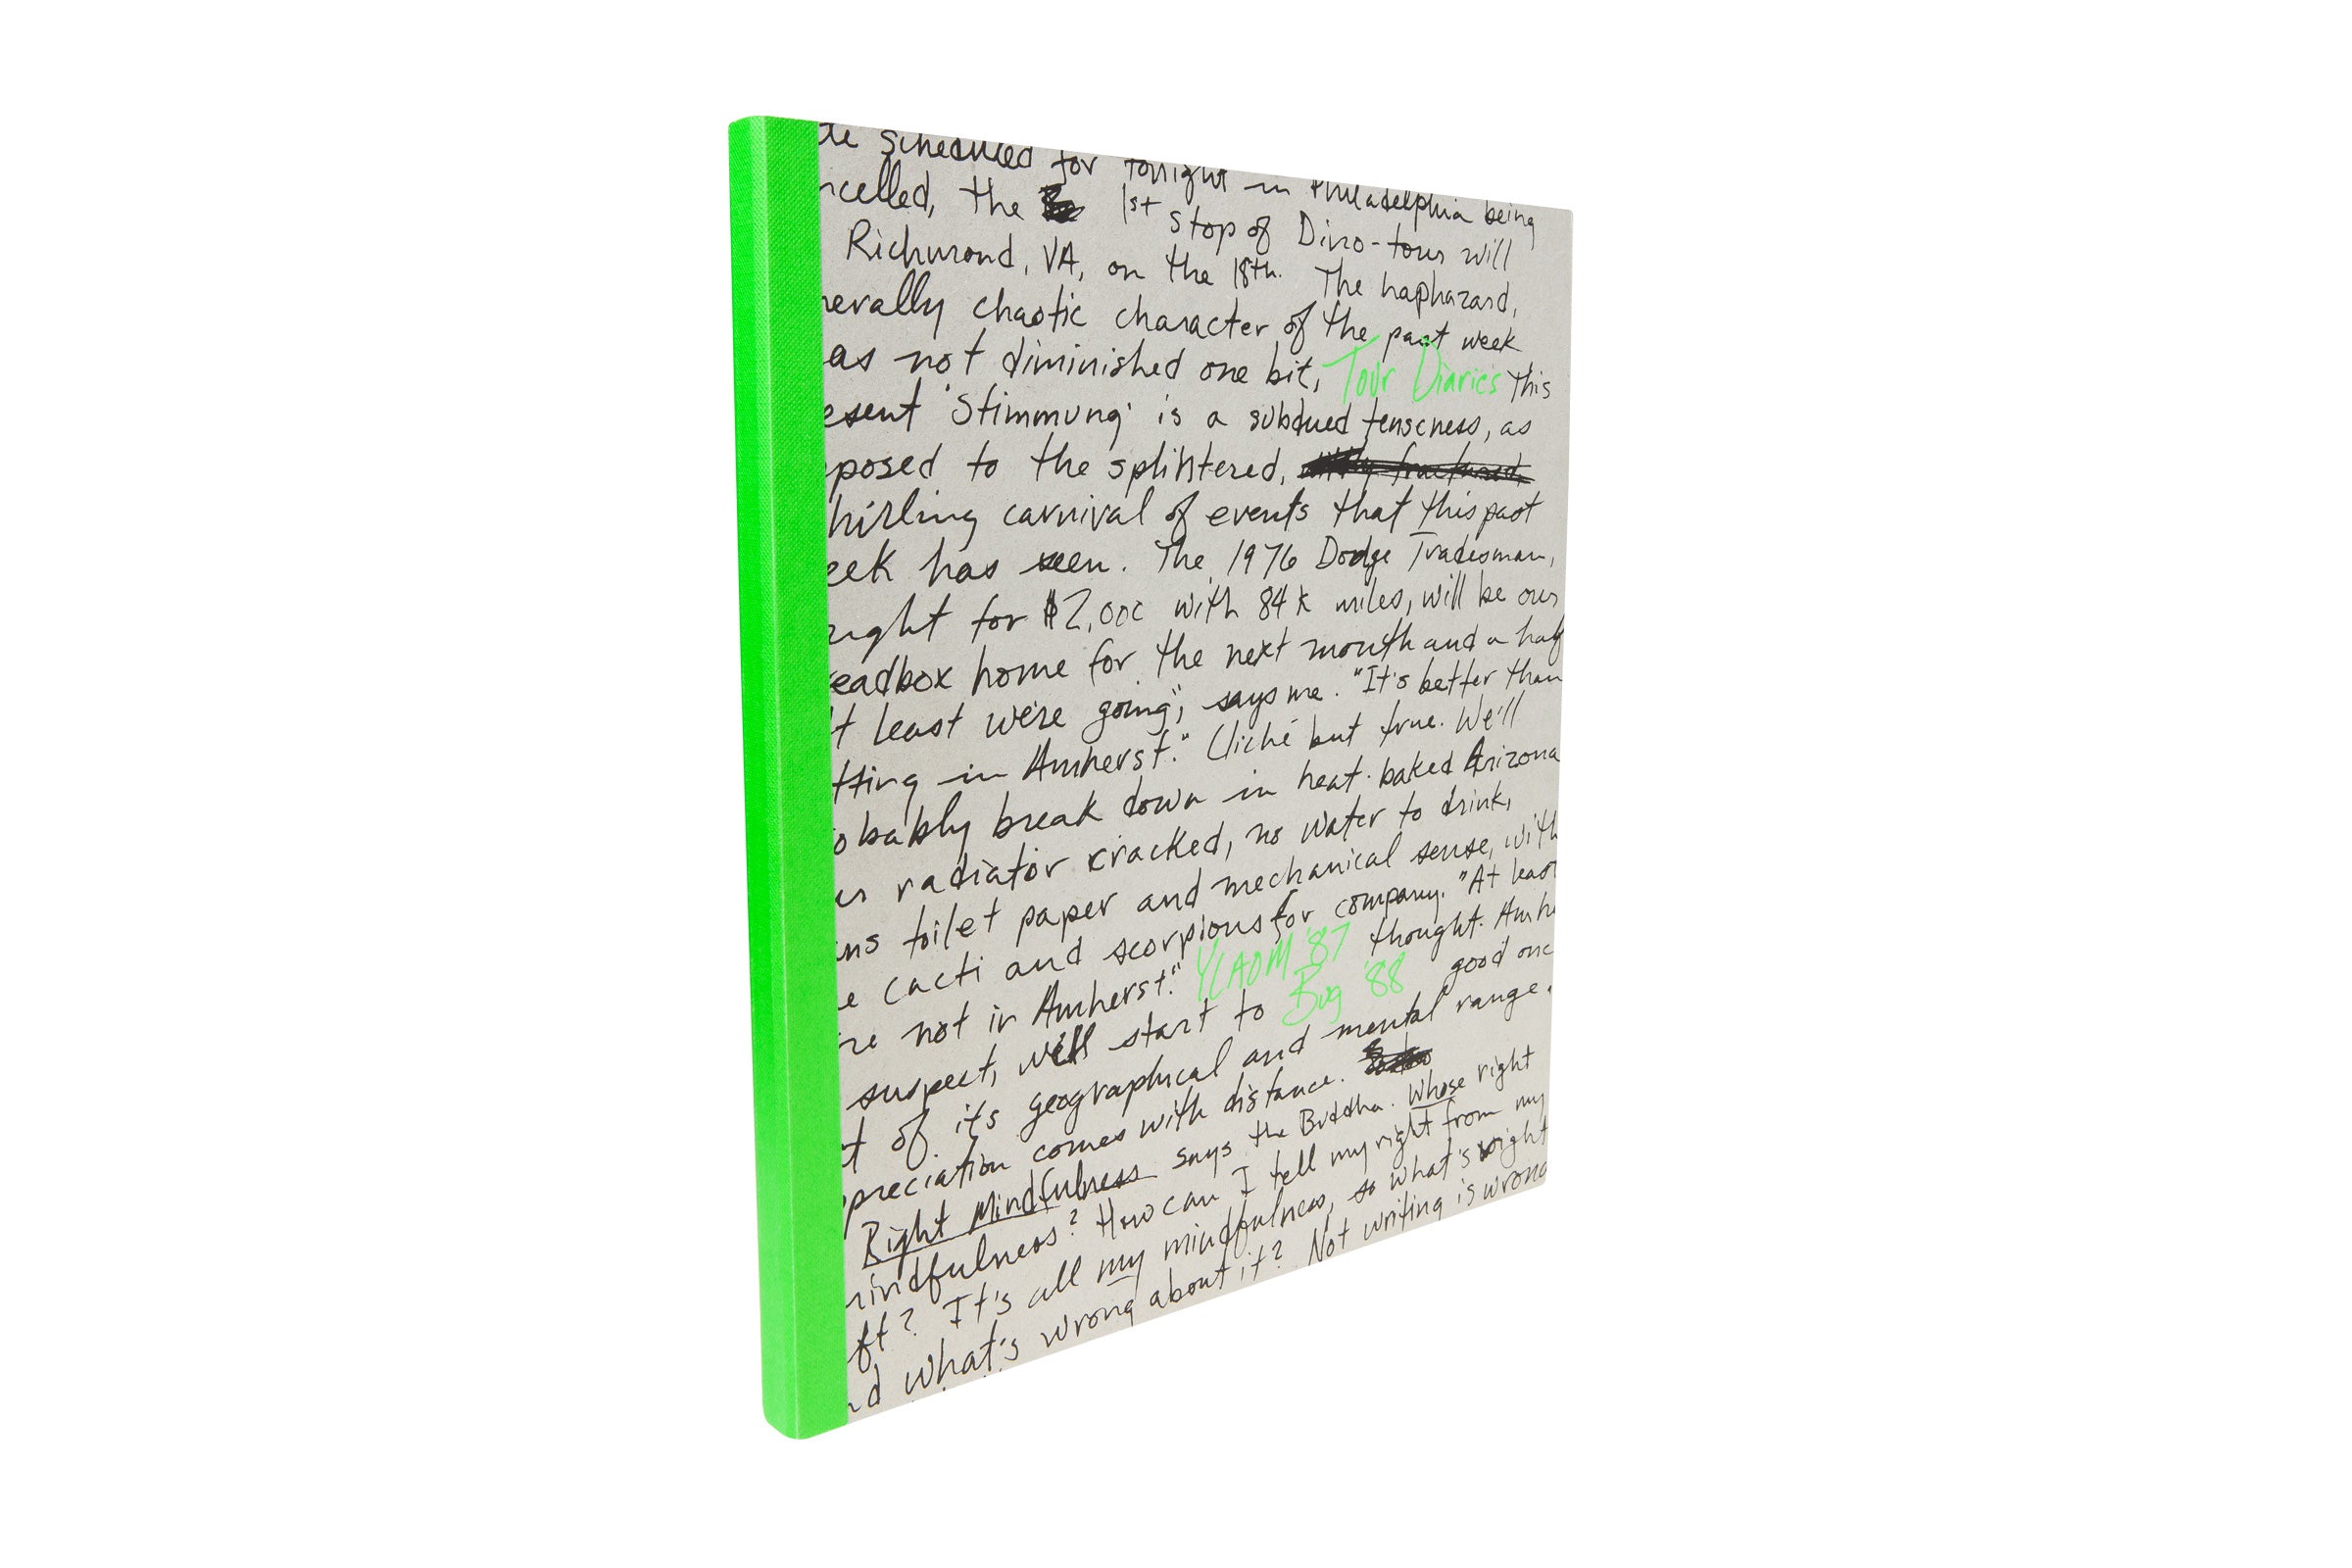 te scheduled for tonight in Philadelphia being
ncelled, the 1st stop of Dino-tour will
Richmond, VA, on the 18th. The haphazard,
nerally chaotic character of the past week
as not diminished one bit, Tour Diaries this
esent 'Stimmung' is a subdued tenseness, as
pposed to the splintered, fractured,
hirling carnival of events that this past
eek has seen. The 1976 Dodge Tradesman,
ught for $2,000 with 84k miles, will be our
readbox home for the next month and a half
t least we're going", says me. "It's better than
tting in Amherst." Cliché but true. We'll
obably break down in heat-baked Arizona
ur radiator cracked, no water to drink,
ans toilet paper and mechanical sense, with
e cacti and scorpions for company. "At least
re not in Amherst." YLAOM '87 thought. Amhe
suspect, we'll start to Bug '88 good one
t of its geographical and mental range.
preciation comes with distance.
Right Mindfulness says the Buddha. Whose right
mindfulness? How can I tell my right from my
ft? It's all my mindfulness, so what's right
nd what's wrong about it? Not writing is wrong